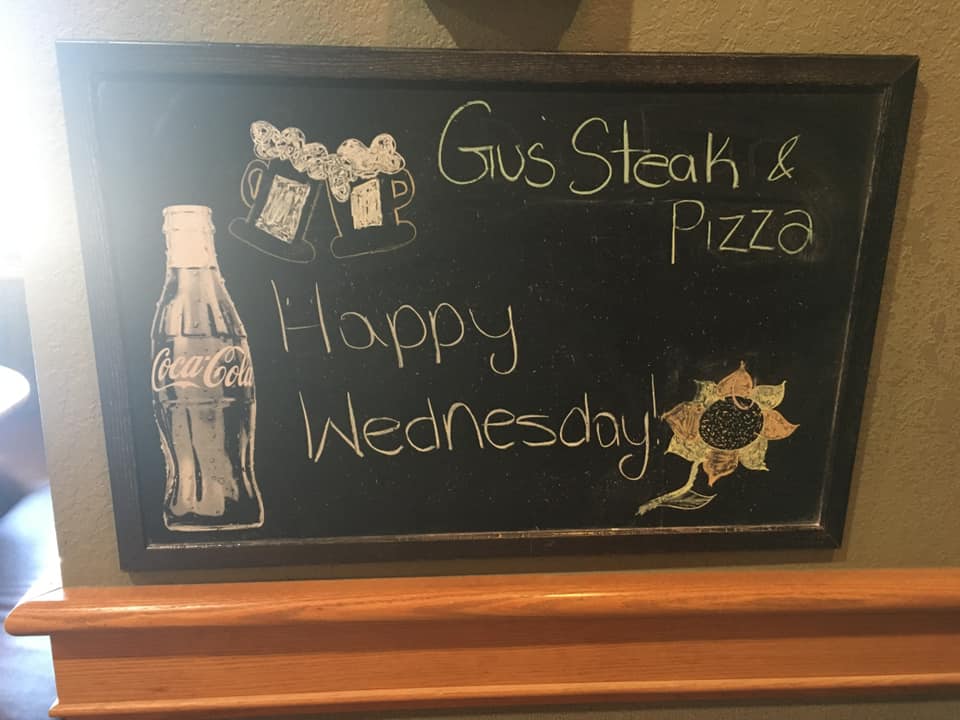 Gus' Steak &
Pizza
Happy
Wednesday!
Coca-Cola